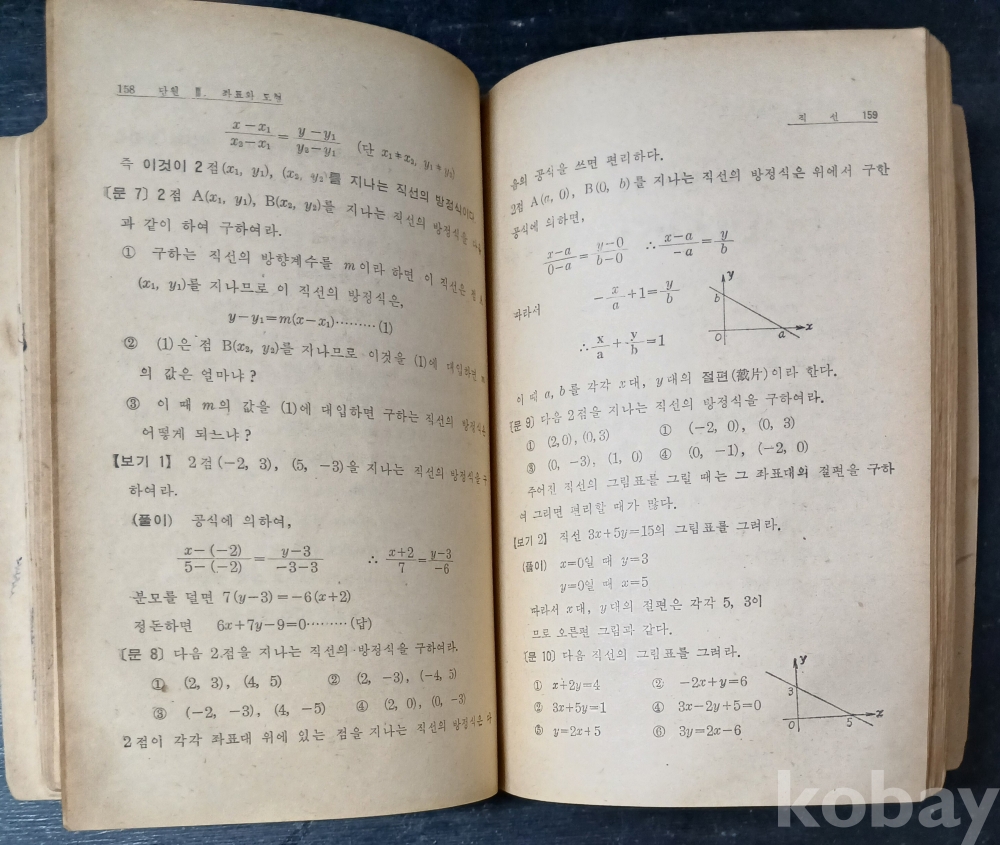 158 단원 Ⅲ. 좌표와 도형
x−x₁/x₂−x₁ = y−y₁/y₂−y₁ (단 x₁≠x₂, y₁≠y₂)
즉 이것이 2점(x₁, y₁), (x₂, y₂)를 지나는 직선의 방정식이다
〔문 7〕 2점 A(x₁, y₁), B(x₂, y₂)를 지나는 직선의 방정식을
과 같이 하여 구하여라.
① 구하는 직선의 방향계수를 m이라 하면 이 직선은
(x₁, y₁)를 지나므로 이 직선의 방정식은,
y−y₁=m(x−x₁)………(1)
② (1)은 점 B(x₂, y₂)를 지나므로 이것을 (1)에 대입하면
의 값은 얼마냐?
③ 이 때 m의 값을 (1)에 대입하면 구하는 직선의 방정식은
어떻게 되느냐?
【보기 1】 2점(−2, 3), (5, −3)을 지나는 직선의 방정식을 구
하여라.
(풀이) 공식에 의하여,
x−(−2)/5−(−2) = y−3/−3−3 ∴ x+2/7 = y−3/−6
분모를 덜면 7(y−3)=−6(x+2)
정돈하면 6x+7y−9=0………(답)
〔문 8〕 다음 2점을 지나는 직선의 방정식을 구하여라.
① (2, 3), (4, 5) ② (2, −3), (−4, 5)
③ (−2, −3), (4, −5) ④ (2, 0), (0, −3)
2점이 각각 좌표대 위에 있는 점을 지나는 직선의 방정식은 다
직 선 159
음의 공식을 쓰면 편리하다.
2점 A(a, 0), B(0, b)를 지나는 직선의 방정식은 위에서 구한
공식에 의하면,
x−a/0−a = y−0/b−0 ∴ x−a/−a = y/b
따라서 −x/a+1=y/b
∴ x/a+y/b=1
y
b
O
a
x
이 때 a, b를 각각 x대, y대의 절편(截片)이라 한다.
〔문 9〕 다음 2점을 지나는 직선의 방정식을 구하여라.
① (2,0), (0,3) ① (−2, 0), (0, 3)
③ (0, −3), (1, 0) ④ (0, −1), (−2, 0)
주어진 직선의 그림표를 그릴 때는 그 좌표대의 절편을 구하
여 그리면 편리할 때가 많다.
【보기 2】 직선 3x+5y=15의 그림표를 그려라.
(풀이) x=0일 때 y=3
y=0일 때 x=5
따라서 x대, y대의 절편은 각각 5, 3이
므로 오른편 그림과 같다.
〔문 10〕 다음 직선의 그림표를 그려라.
① x+2y=4 ② −2x+y=6
③ 3x+5y=1 ④ 3x−2y+5=0
⑤ y=2x+5 ⑥ 3y=2x−6
y
3
O
5
x
kobay